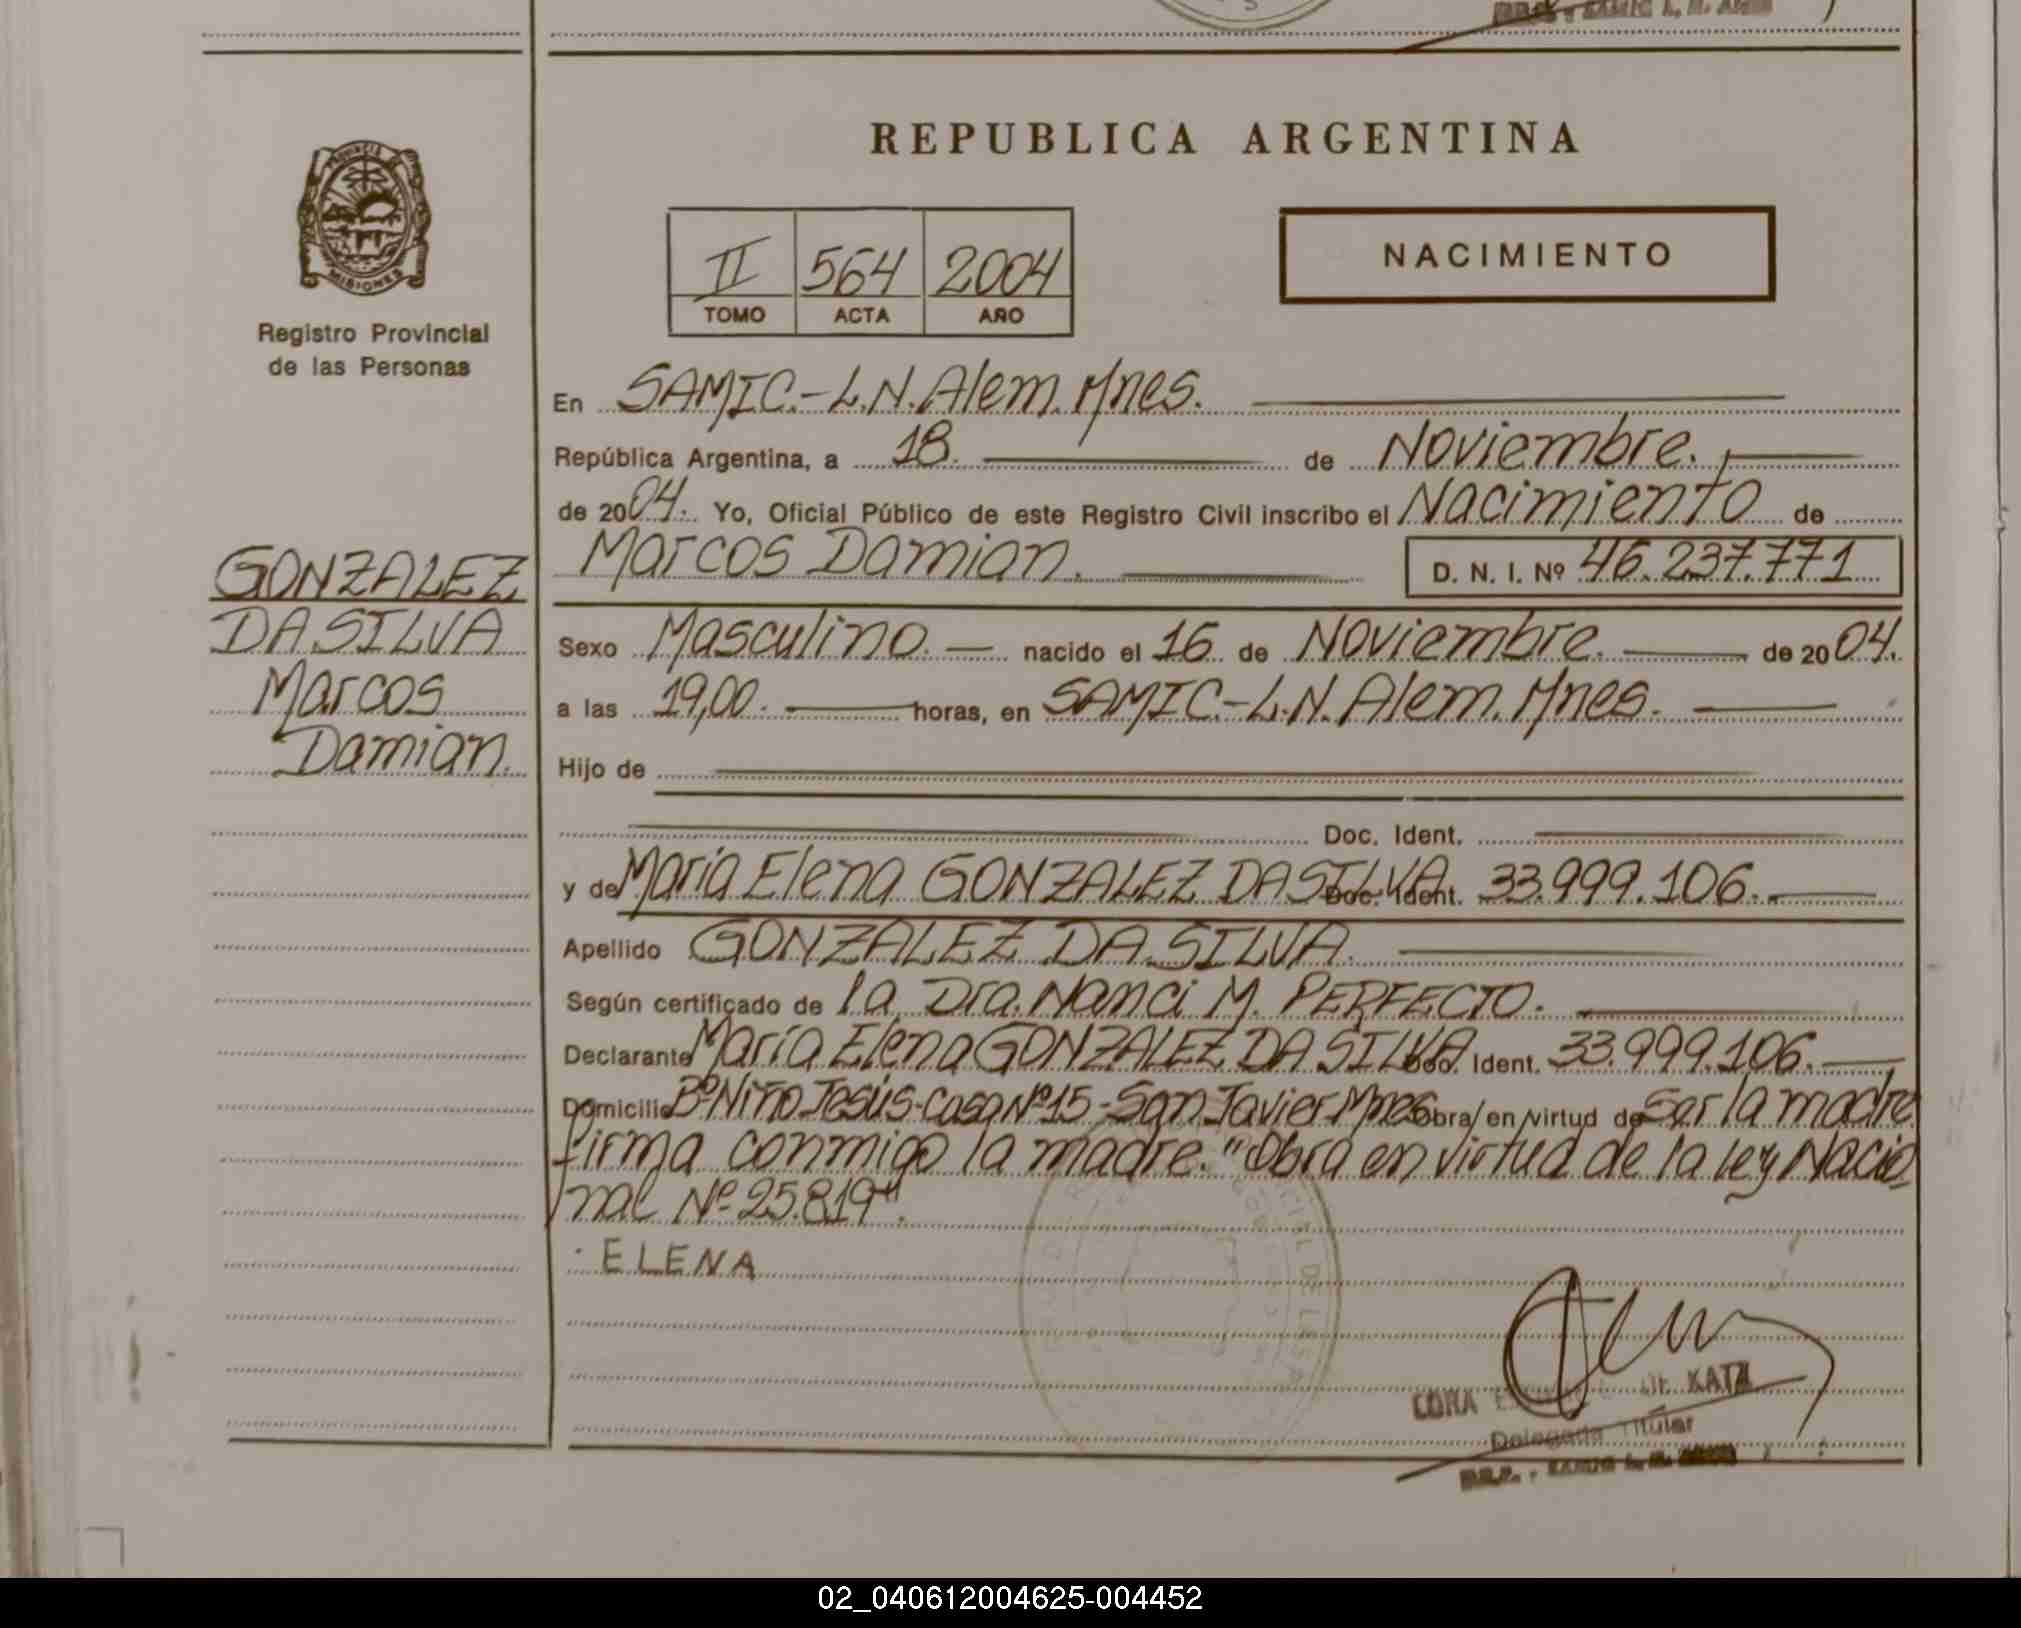 REPUBLICA ARGENTINA
PROVINCIA DE
MISIONES
Registro Provincial
de las Personas
II 564 2004
TOMO ACTA AÑO
NACIMIENTO
En SAMIC.-L.N.Alem.Mnes.
República Argentina, a 18. de Noviembre.
de 2004. Yo, Oficial Público de este Registro Civil inscribo el Nacimiento de
Marcos Damian. D. N. I. Nº 46.237.771
GONZALEZ
DA SILVA
Marcos
Damian.
Sexo Masculino. nacido el 16 de Noviembre. de 2004.
a las 19,00. horas, en SAMIC.-L.N.Alem.Mnes.
Hijo de
Doc. Ident.
y de María Elena GONZALEZ DA SILVA Doc. Ident. 33.999.106.
Apellido GONZALEZ DA SILVA.
Según certificado de la Dra. Nanci M. PERFECTO.
Declarante María Elena GONZALEZ DA SILVA Doc. Ident. 33.999.106.
Domicilio Bº Niño Jesús-Casa Nº15-San Javier Mnes Obra/en/virtud de Ser la madre
firma conmigo la madre. "Obra en virtud de la ley Nacio
nal Nº 25.819".
ELENA
CORA KATZ
Delegada Titular
02_040612004625-004452